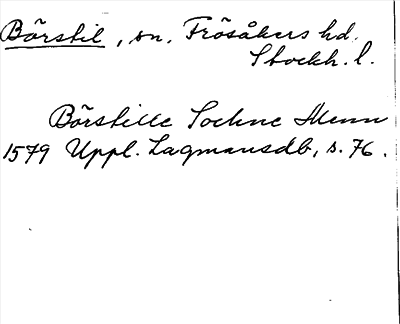 Börstil, sn. Frösåkers hd.
Stockh. l.
Börstille Sochne Menn
1579 Uppl. Lagmansdb, s. 76.